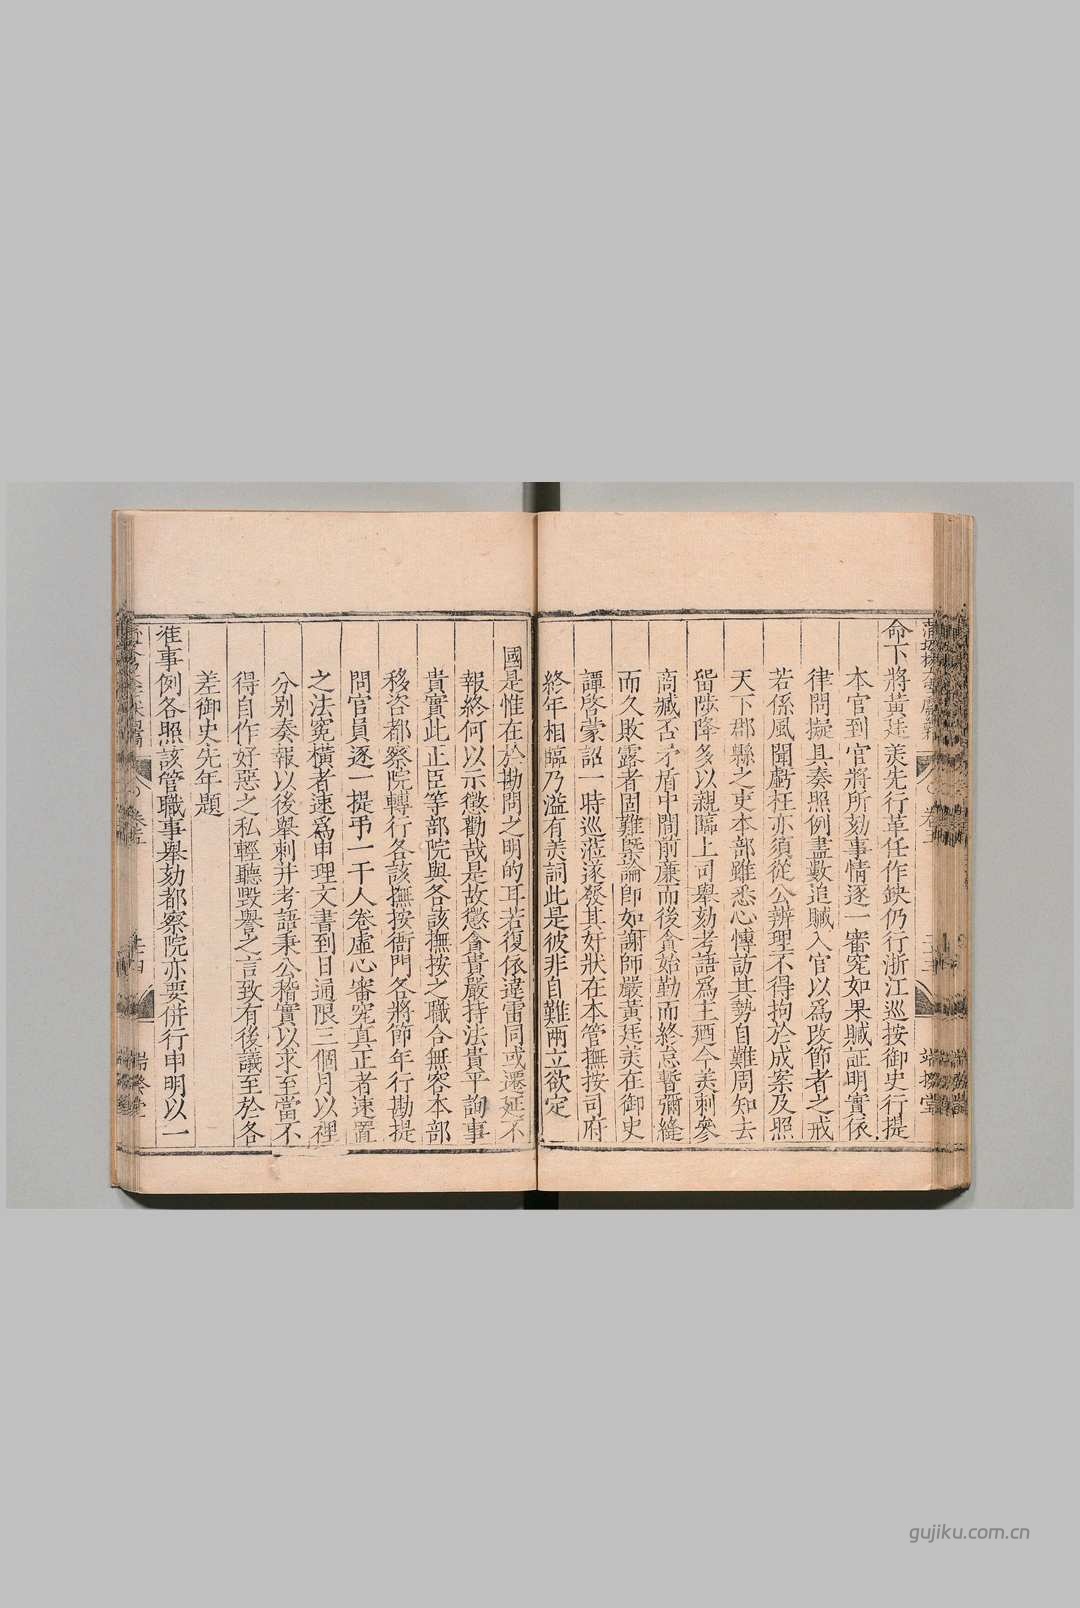 命下將黃廷美先行革任作缺仍行浙江巡按御史行提
本官到官將所劾事情逐一審究如果贓証明實依
律問擬具奏照例盡數追贓入官以爲改節者之戒
若係風聞虧枉亦須從公辨理不得拘於成案及照
天下郡縣之吏本部雖悉心博訪其勢自難周知去
留陟降多以親臨上司舉劾考語爲主廼今美刺參
商臧否矛盾中間前廉而後貪始勤而終怠暫彌縫
而久敗露者固難槩論卽如謝師嚴黃廷美在御史
譚啓蒙詔一時巡蒞遂發其奸狀在本管撫按司府
終年相臨乃溢有美詞此是彼非自難兩立欲定
國是惟在於勘問之明的耳若復依違雷同或遷延不
報終何以示懲勸哉是故懲貪貴嚴持法貴平詢事
貴實此正臣等部院與各該撫按之職合無容本部
移咨都察院轉行各該撫按衙門各將節年行勘提
問官員逐一提弔一干人卷虛心審究真正者速置
之法冤橫者速爲申理文書到日通限三個月以裡
分别奏報以後舉刺并考語秉公稽實以求至當不
得自作好惡之私輕聽毀譽之言致有後議至於各
差御史先年題
准事例各照該管職事舉劾都察院亦要併行申明以一
gujiku.com.cn